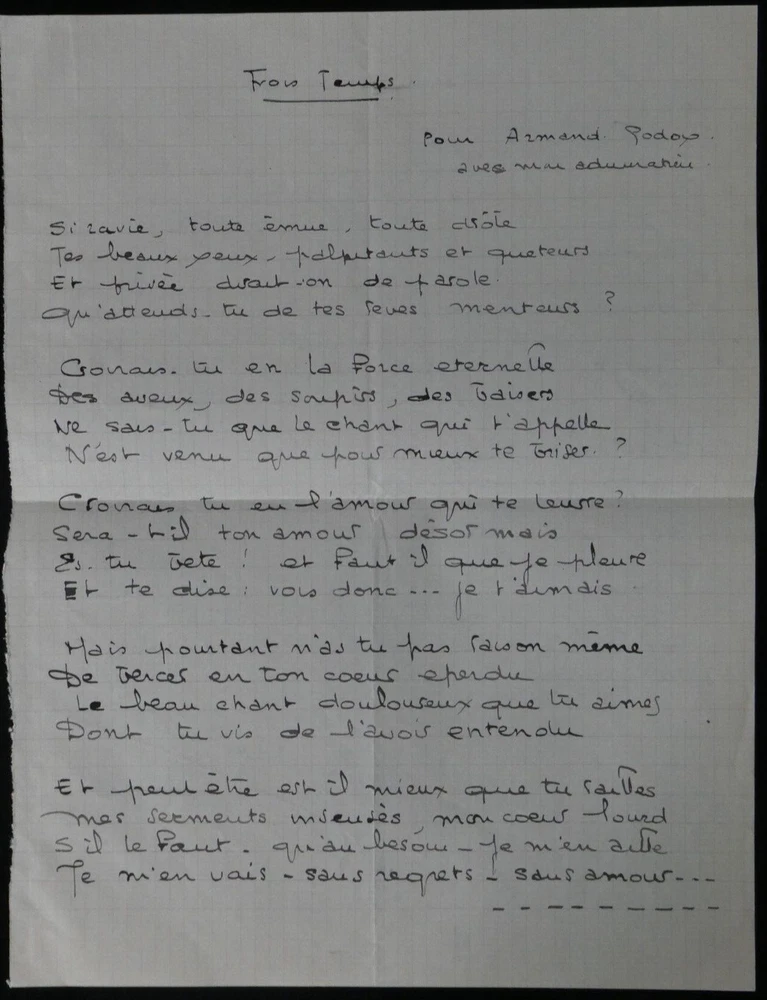 Trois Temps.
Pour Armand Godoy.
avec mon admiration.
Si ravie, toute émue, toute drôle
Tes beaux yeux, palpitants et queteurs
Et privée dirait-on de parole.
Qu'attends-tu de tes reves menteurs ?
Crovais-tu en la Force eternelle
Des aveux, des soupirs, des baisers
Ne sais-tu que le chant qui t'appelle
N'est venu que pour mieux te briser. ?
Crovais tu en l'amour qui te leurre ?
Sera-t-il ton amour désormais
Es. tu bete ! et Faut il que je pleure
Et te dise : vois donc ... je t'aimais.
Mais pourtant n'as tu pas raison même
De bercer en ton coeur eperdu
Le beau chant douloureux que tu aimes
Dont tu vis de l'avoir entendu
Et peut être est il mieux que tu railles
mes serments insensés, mon coeur lourd
S'il le Faut. qu'au besoin - je m'en aille
Je m'en vais - sans regrets - sans amour---